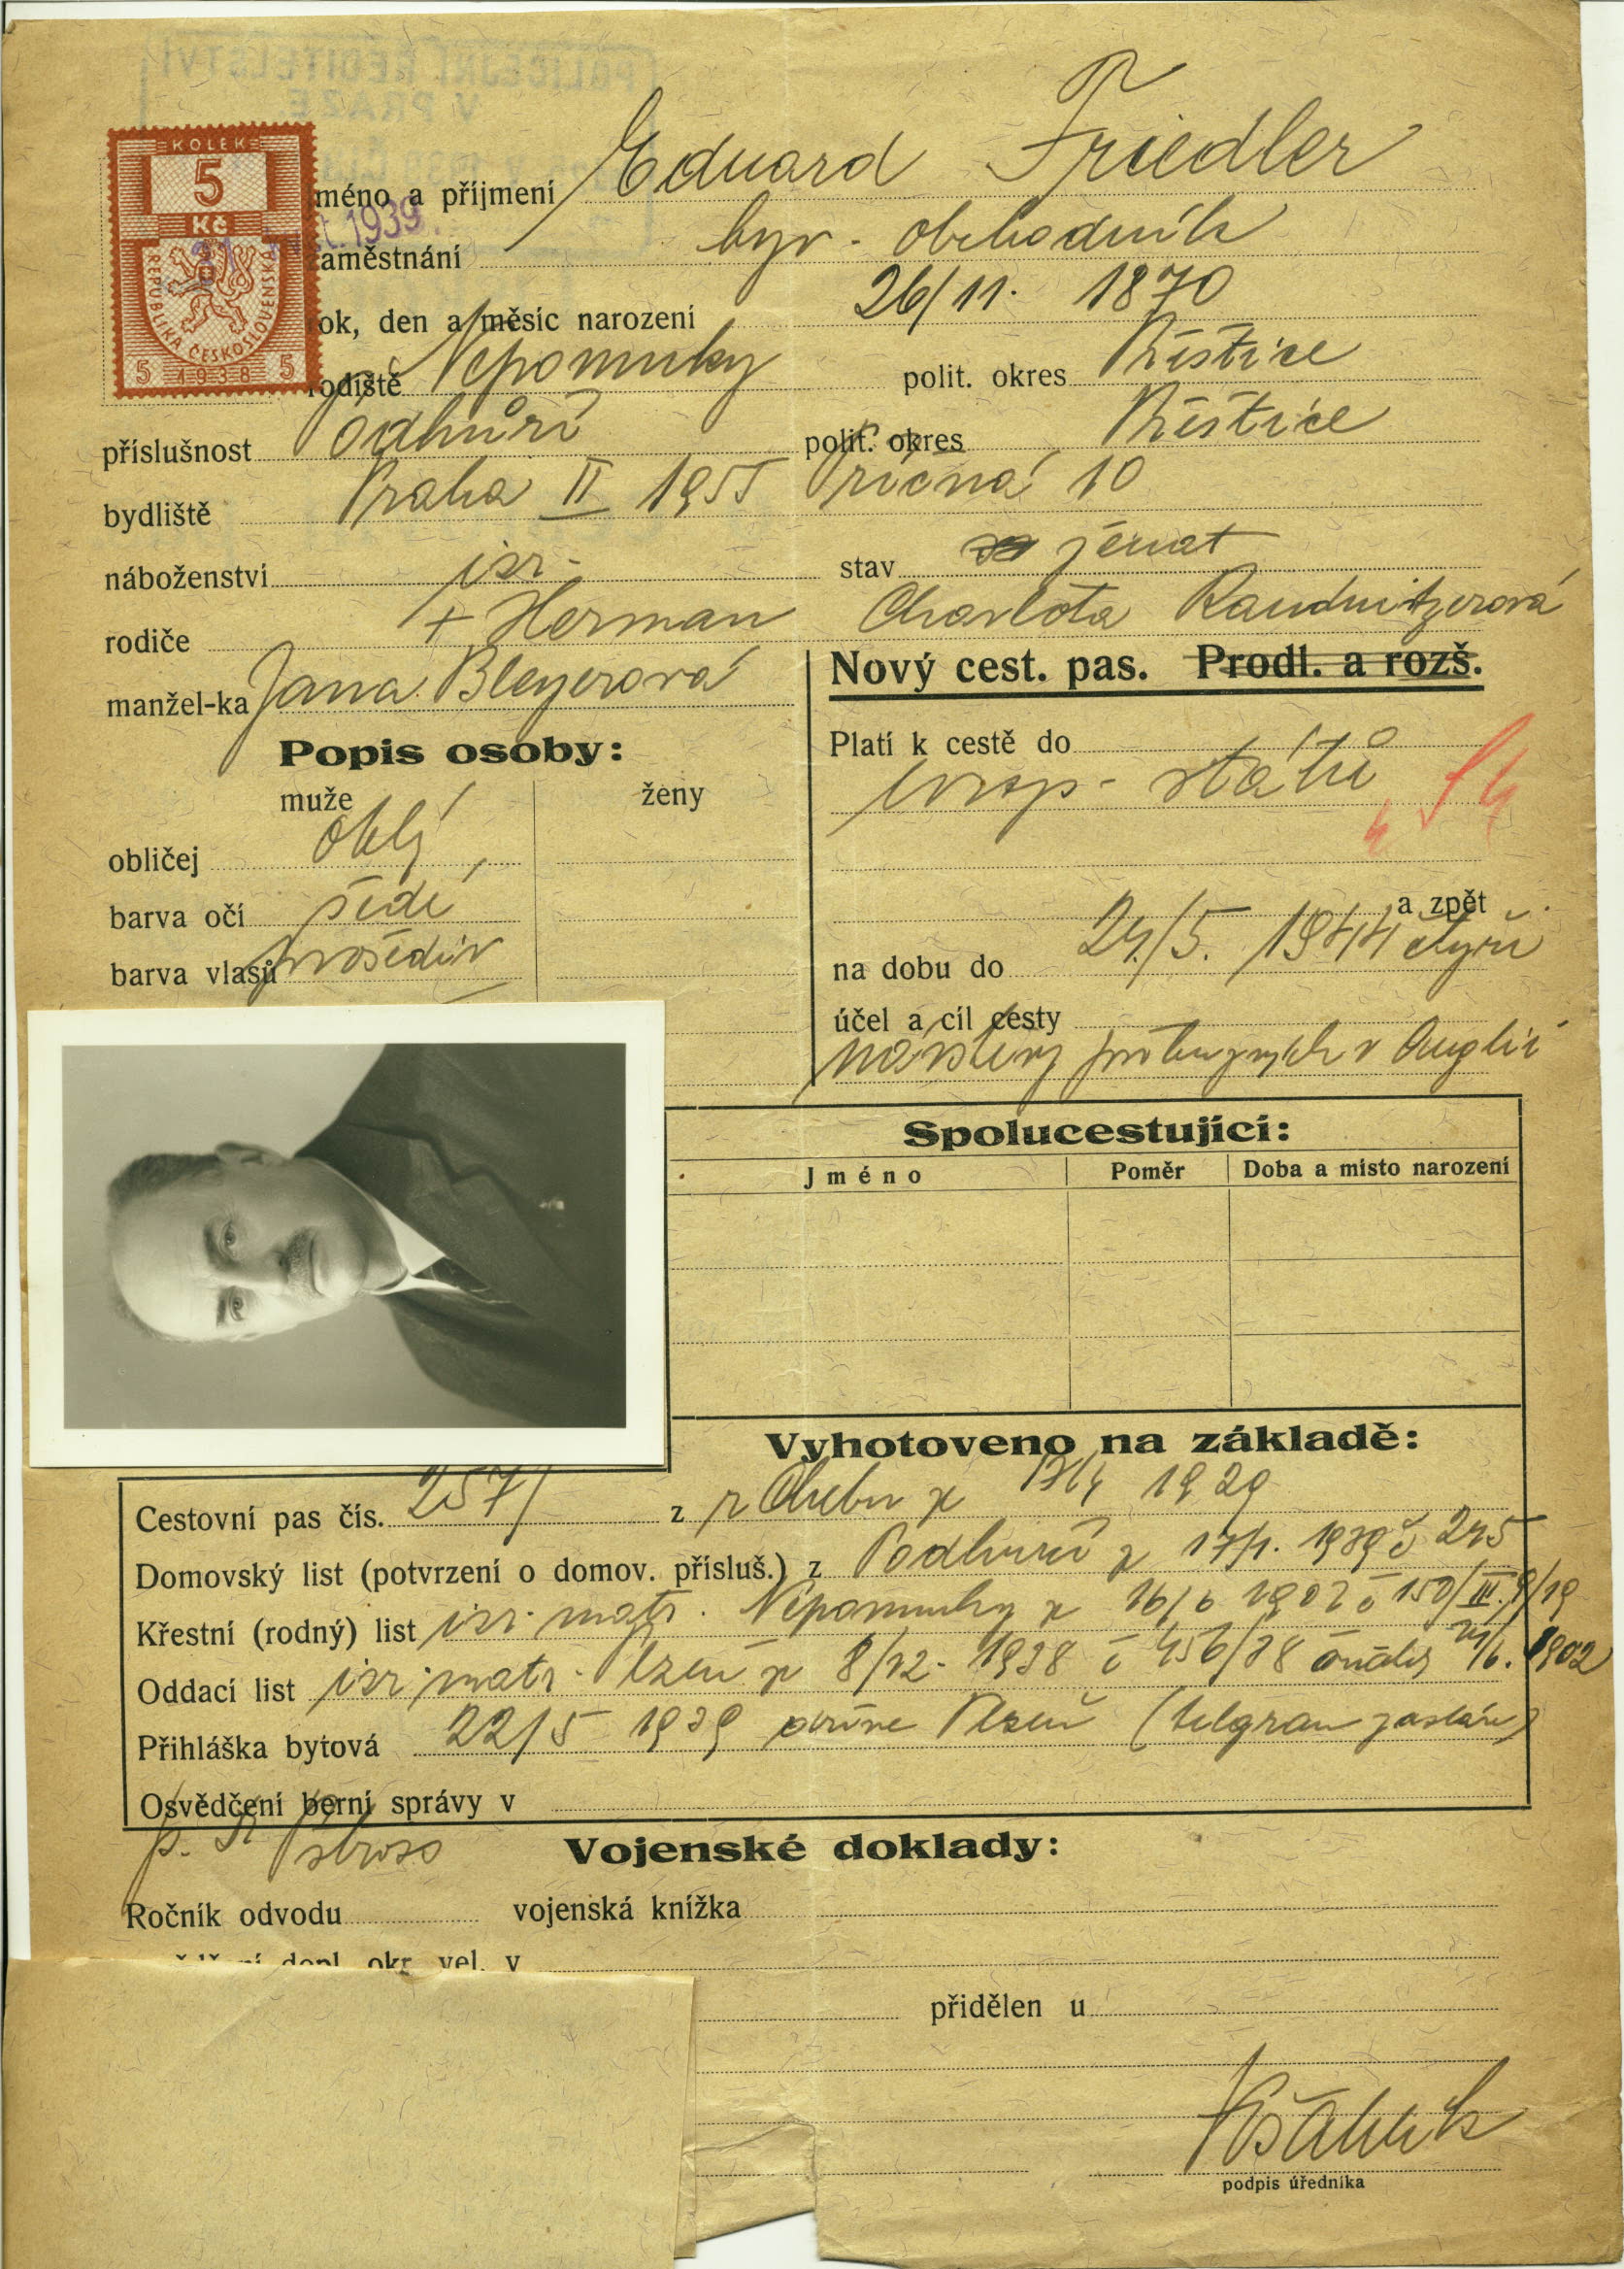 KOLEK
5
Kč
REPUBLIKA ČESKOSLOVENSKÁ
5 1938 5
1939
POLICEJNÍ ŘEDITELSTVÍ
V PRAZE
méno a příjmení Eduard Friedler
aměstnání byv. obchodník
ok, den a měsíc narození 26/11. 1870
rodiště Nepomuky polit. okres Přeštice
příslušnost Podhůří polit. okres Přeštice
bydliště Praha II 1955 Příčná 10
náboženství isr. stav ženat
rodiče + Herman Charlota Raudnitzerová
manžel-ka Jana Bleyerová
Nový cest. pas. Prodl. a rozš.
Popis osoby:
muže ženy
obličej oblý
barva očí šedé
barva vlasů prošediv
Platí k cestě do
evrop. států
a zpět
na dobu do 24./5. 1944 čtyři
účel a cíl cesty
návštěvy příbuzných v Anglii
Spolucestující:
Jméno Poměr Doba a místo narození
Vyhotoveno na základě:
Cestovní pas čís. 2571 z Chebu z 1929
Domovský list (potvrzení o domov. přísluš.) z Podhůří z 17/1. 1939 č 245
Křestní (rodný) list isr. matr. Nepomuky z 16/6 1902 č 150/III.
Oddací list isr. matr. Plzeň z 8/12. 1938 č 456/38 /6. 1902
Přihláška bytová 22/5 1939 Plzeň (telgram zaslán)
Osvědčení berní správy v
Vojenské doklady:
Ročník odvodu vojenská knížka
dopl. okr. vel. v
přidělen u
podpis úředníka